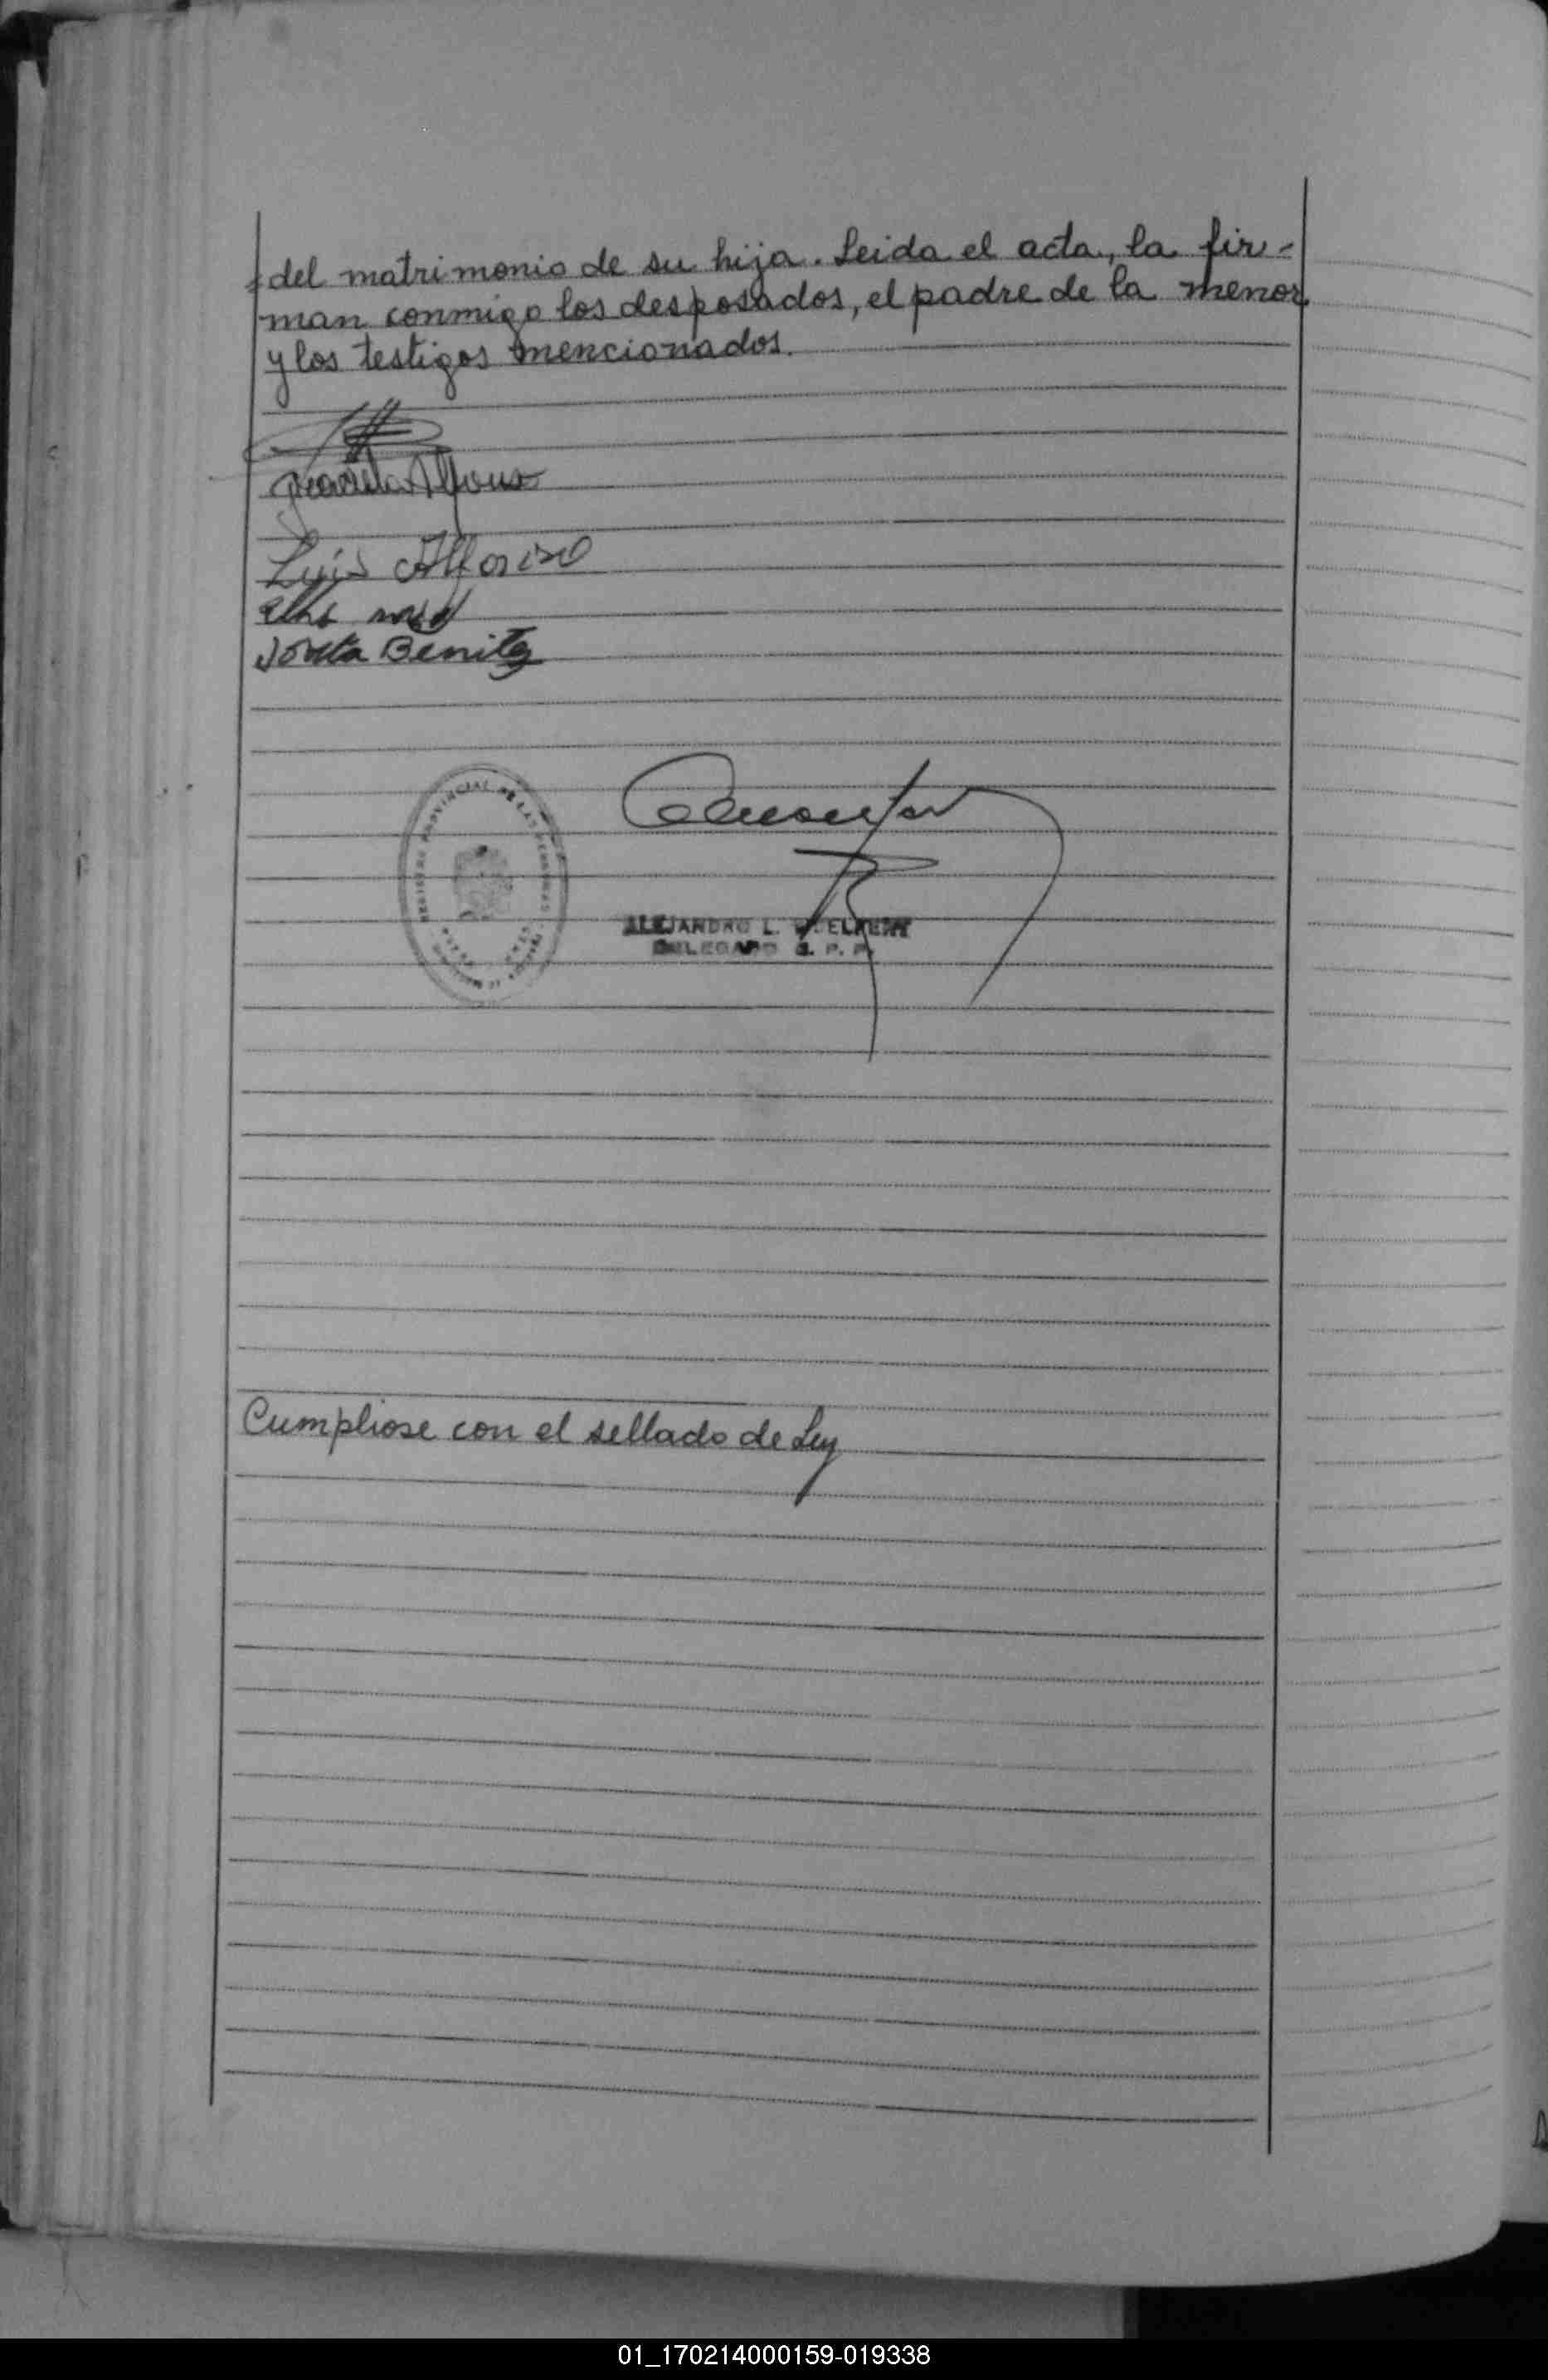 del matrimonio de su hija. Leida el acta, la fir-
man conmigo los desposados, el padre de la menor
y los testigos mencionados.
Graciela Alfonso
Luis Alfonso
Benitez
REGISTRO PROVINCIAL DE LAS PERSONAS
ALEJANDRO L.
DELEGADO R. P. P.
Cumpliose con el sellado de Ley
01_170214000159-019338